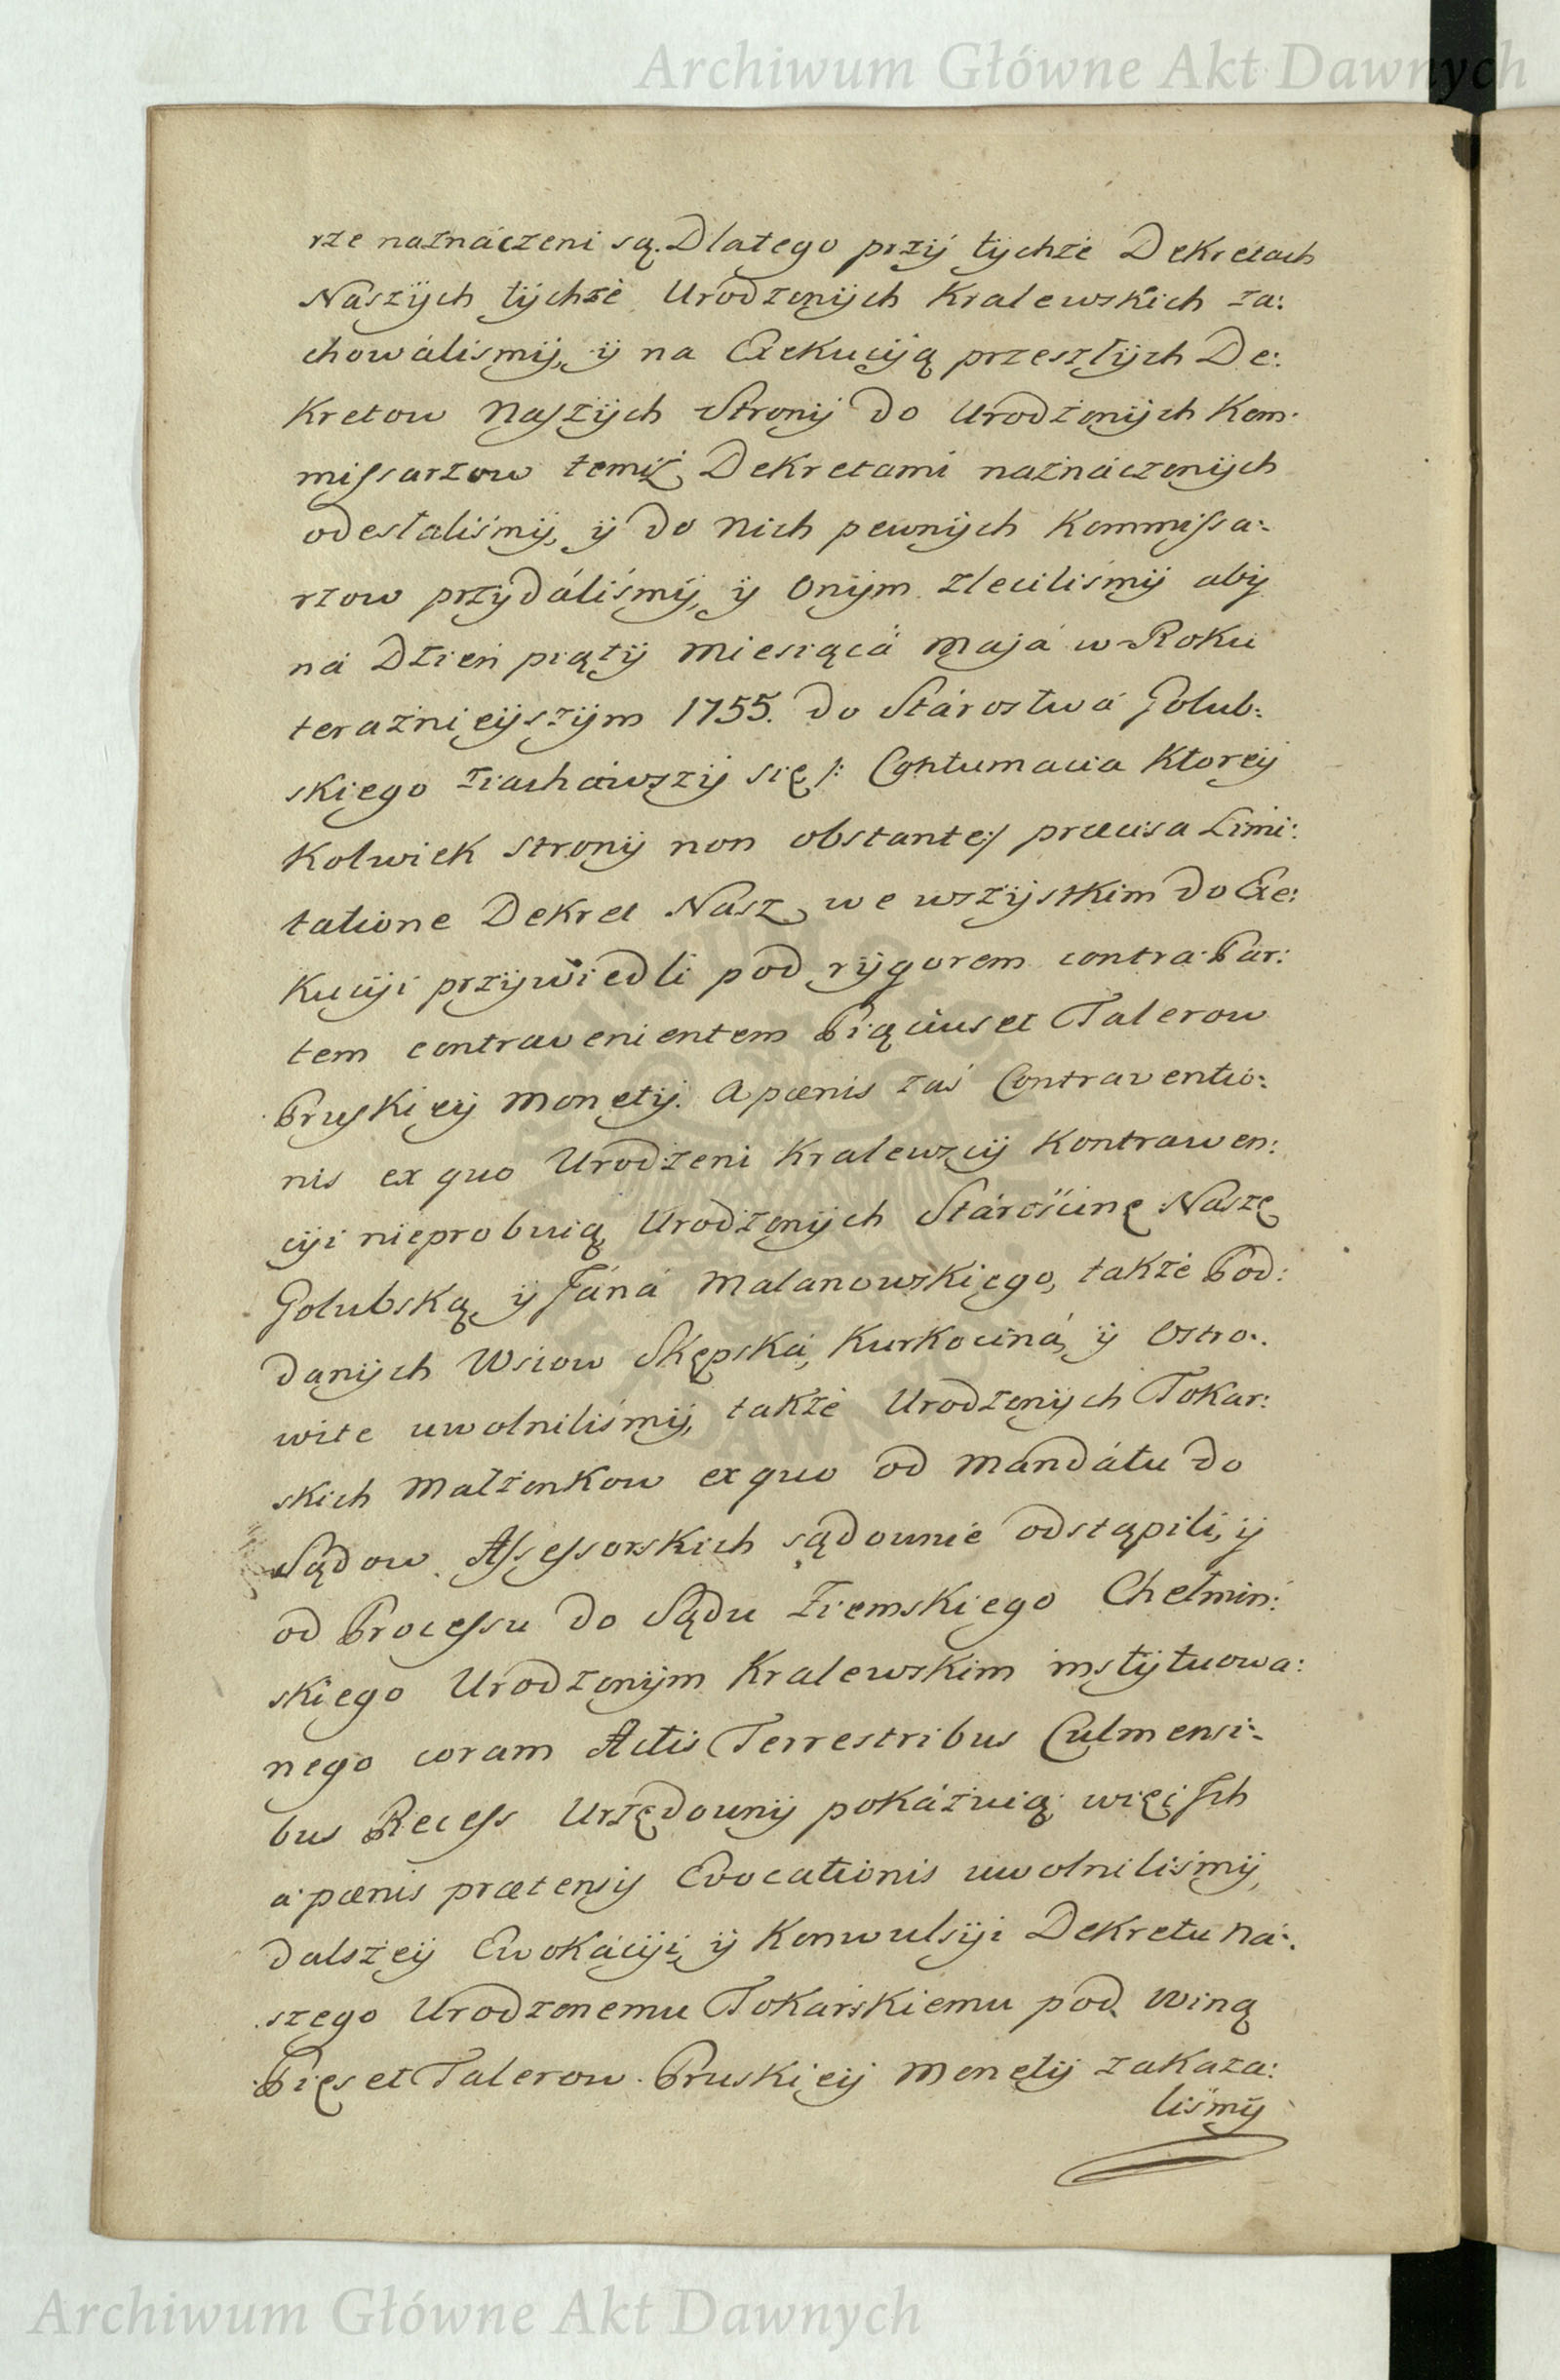 Archiwum Główne Akt Dawnych
rze naznáczeni są. Dlatego przÿ tÿchże Dekretach
Naszÿch tÿchże Urodzonÿch Kralewskich za:
chowáliśmÿ, ÿ na Exekucÿą przeszłÿch De:
kretow Naszÿch Stronÿ do Urodzonÿch Kom:
missarzow temiż Dekretami náznáczonÿch
odesłaliśmÿ, ÿ do Nich pewnÿch Kommissa:
rzow przÿdáliśmÿ, ÿ Onÿm zleciliśmÿ abÿ
ná Dzień piątÿ Miesiącá Majá w Roku
teraznieÿszÿm 1755. do Stárostwá Golub:
skiego ziachawszÿ się /: Contumacia Ktoreÿ
Kolwiek stronÿ non obstante :/ præcisa Limi:
tatione Dekret Nasz we wszÿstkim do Exe:
kucÿi przÿwiedli pod rÿgorem contra Par:
tem contravenientem Piąciuset Talerow
Pruskieÿ Monetÿ. A pœnis zaś Contraventio:
nis ex quo Urodzeni Kralewscÿ Kontrawen:
cÿi nieprobuią, Urodzonÿch Stárościnę Naszę
Golubską, ÿ Jáná Malanowskiego, także Pod:
danÿch Wsiow Skępská, Kurkociná, ÿ Ostro:
wite uwolniliśmÿ, także Urodzonÿch Tokar:
skich Małżonkow ex quo od Mandátu do
Sądow Assessorskich sądownie odstąpili, ÿ
od Processu do Sądu Ziemskiego Chełmin:
skiego Urodzonÿm Kralewskim instÿtuowa:
nego coram Actis Terrestribus Culmensi:
bus Recess Urzędownÿ pokázuią, więc Ich
a pœnis prætensÿ Evocationis uwolniliśmÿ,
dalszeÿ Ewokácÿi, ÿ Konwulsÿi Dekretu Ná:
szego Urodzonemu Tokarskiemu pod winą
Pięset Talerow Pruskieÿ Monetÿ zakaza:
liśmÿ
Archiwum Główne Akt Dawnych